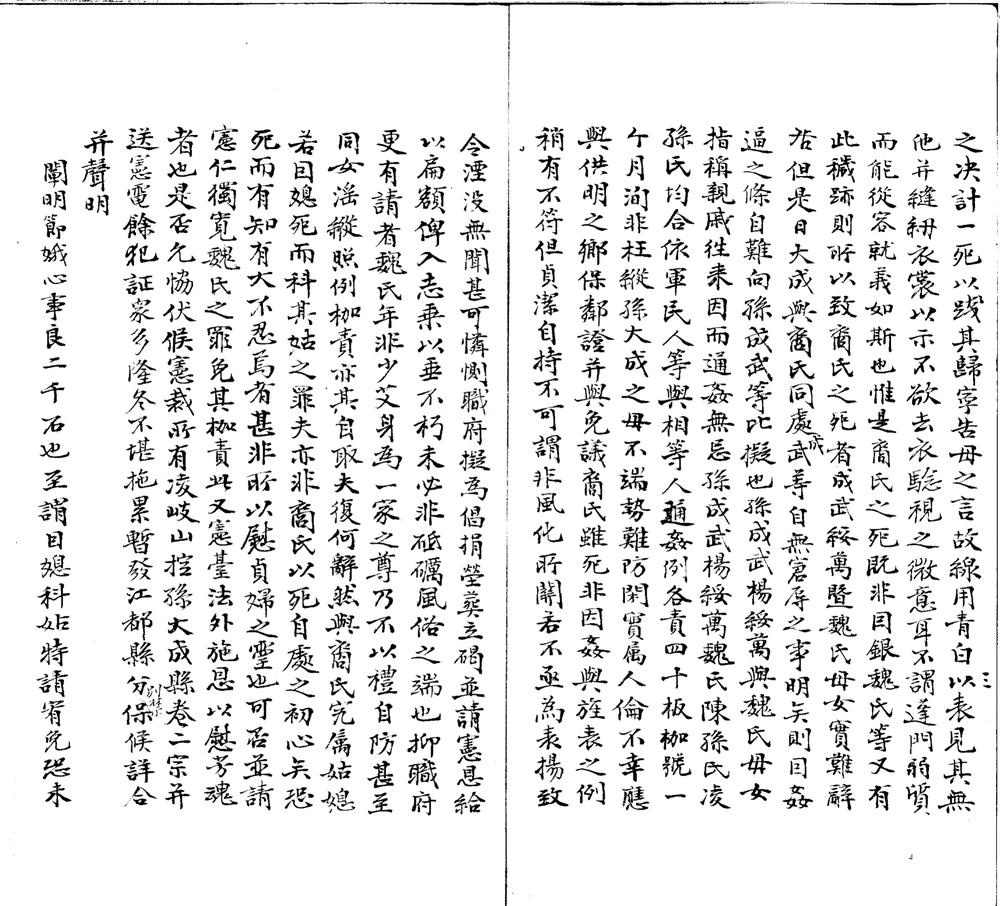 之决計一死以踐其歸寧告母之言故線用青白以表見其無
他并縫紉衣裳以示不欲去衣騐視之微意耳不謂蓬門弱質
而能從容就義如斯也惟是裔氏之死既非因銀魏氏等又有
此穢跡則所以致裔氏之死者成武綏萬暨魏氏母女實難辭
咎但是日大成與裔氏同處成武等自無窘辱之事明矣則因姦
逼之條自難向孫成武等比擬也孫成武楊綏萬與魏氏母女
指稱親戚徃来因而通姦無忌孫成武楊綏萬魏氏陳孫氏凌
孫氏均合依軍民人等與相等人通姦例各責四十板枷號一
个月洵非枉縱孫大成之母不端勢難防閑實属人倫不幸應
與供明之鄉保鄰證并與免議裔氏雖死非因姦與旌表之例
稍有不符但貞潔自持不可謂非風化所關若不亟為表揚致
令湮没無聞甚可憐惻職府擬為倡捐塋葬立碣並請憲恩給
以扁額俾入志乗以垂不朽未必非砥礪風俗之端也抑職府
更有請者魏氏年非少艾身為一家之尊乃不以禮自防甚至
同女滛縱照例枷責亦其自取夫復何辭然與裔氏究属姑媳
若因媳死而科其姑之罪夫亦非裔氏以死自處之初心矣恐
死而有知有大不忍焉者甚非所以慰貞婦之霊也可否並請
憲仁獨寛魏氏之罪免其枷責此又憲臺法外施恩以慰芳魂
者也是否允恊伏候憲裁所有凌岐山控孫大成縣卷二宗并
送憲電餘犯証衆多隆冬不堪拖累暫發江都縣分别保候詳合
并聲明
闡明節娥心事良二千石也至謂因媳科姑特請宥免恐未
三